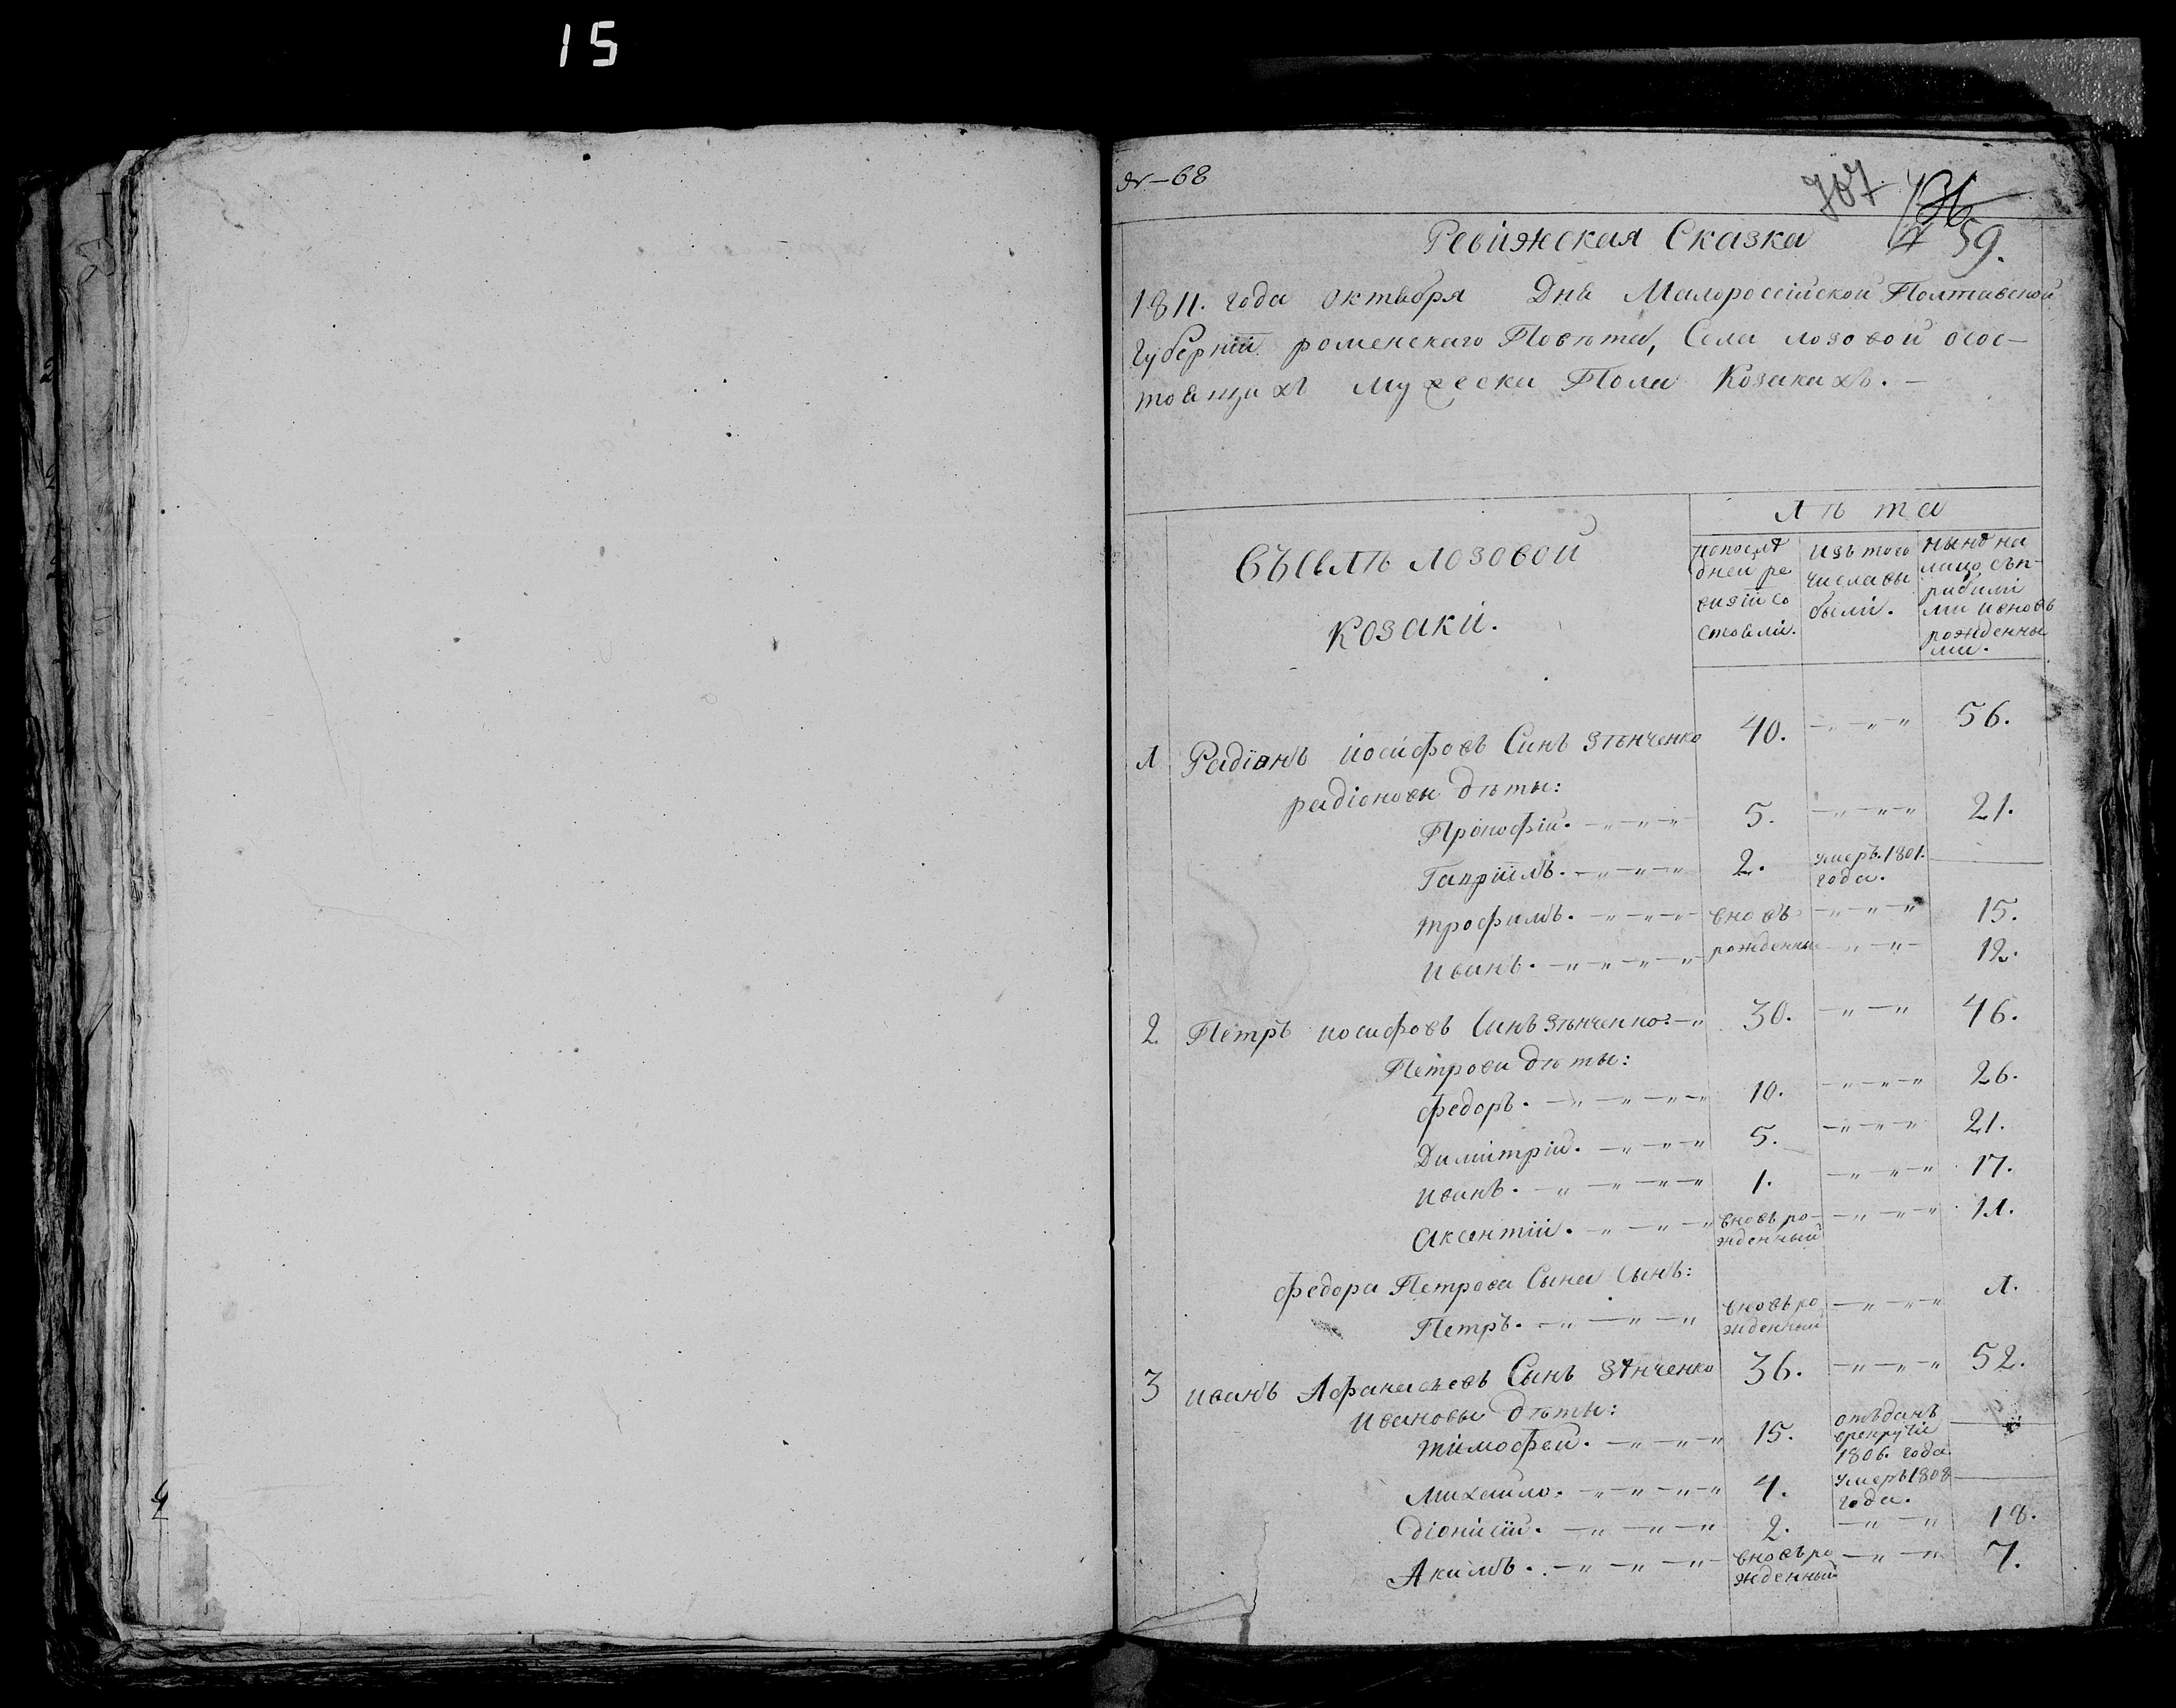 15
№—68
707
59.
Ревижская Сказка
1811. года октебря Дня Малоросійской Полтавской
Губерніи роменскаго Повѣта, Села лозовой осос-
тоящихъ мужеска Пола Козакахъ.—
Лѣта
Въселѣ лозовой
Козаки.
попослѣ
дней ре
визіи со
стояли.
Изъ того
числа вы
были.
нынѣ на
лицо, съп-
рибилі
ми ивновь
рожденны
ми.
1 Радіонъ Йосифовъ Синъ Зѣнченко 40. —„—„—„ 56.
радіонови дѣты:
Прокофій. —„—„—„ 5. —„—„—„ 21.
Гавріилъ. —„—„—„ 2. умеръ. 1801. года. ——
трофимъ. —„—„—„ вновъ —„—„—„ 15.
Иванъ. —„—„—„—„ рожденны —„—„— 12.
2 Петръ иосифовъ Синъ Зѣнченко. —„ 30. —„—„ 46.
Петрови дѣты:
Федоръ. —„—„—„—„ 10. —„—„—„ 26.
Димитрій. —„—„—„ 5. —„—„—„ 21.
иванъ. —„—„—„—„ 1. —„—„—„ 17.
Аксентій. —„—„—„ вновъ ро-
жденный —„—„—„ 11.
Федора Петрова Сына Сынъ:
Петръ. —„—„—„ вновъ ро
жденный —„—„—„ 1.
3 иванъ Афанасіевъ Сынъ Зѣнченко 36. —„—„—„ 52.
Ивановы дѣты:
тимофей. —„—„—„ 15. отъданъ
врекруты
1806. года ——
Михаило. —„—„—„—„ 4. умеръ 1808
года. ——
діонисій. —„—„—„ 2. —„—„ 18.
Акимъ. —„—„—„ вновъ ро
жденный —„—„ 7.